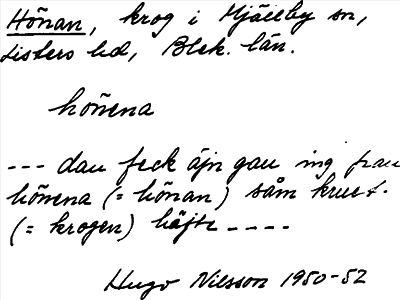 Hönan, krog i Mjällby sn,
Listers hd, Blek. län.
hönena
--- dau feck äjn gau mg frau
hönena (= hönan) såm krue t.
(= krogen) häjte ----
Hugo Nilsson 1950-52